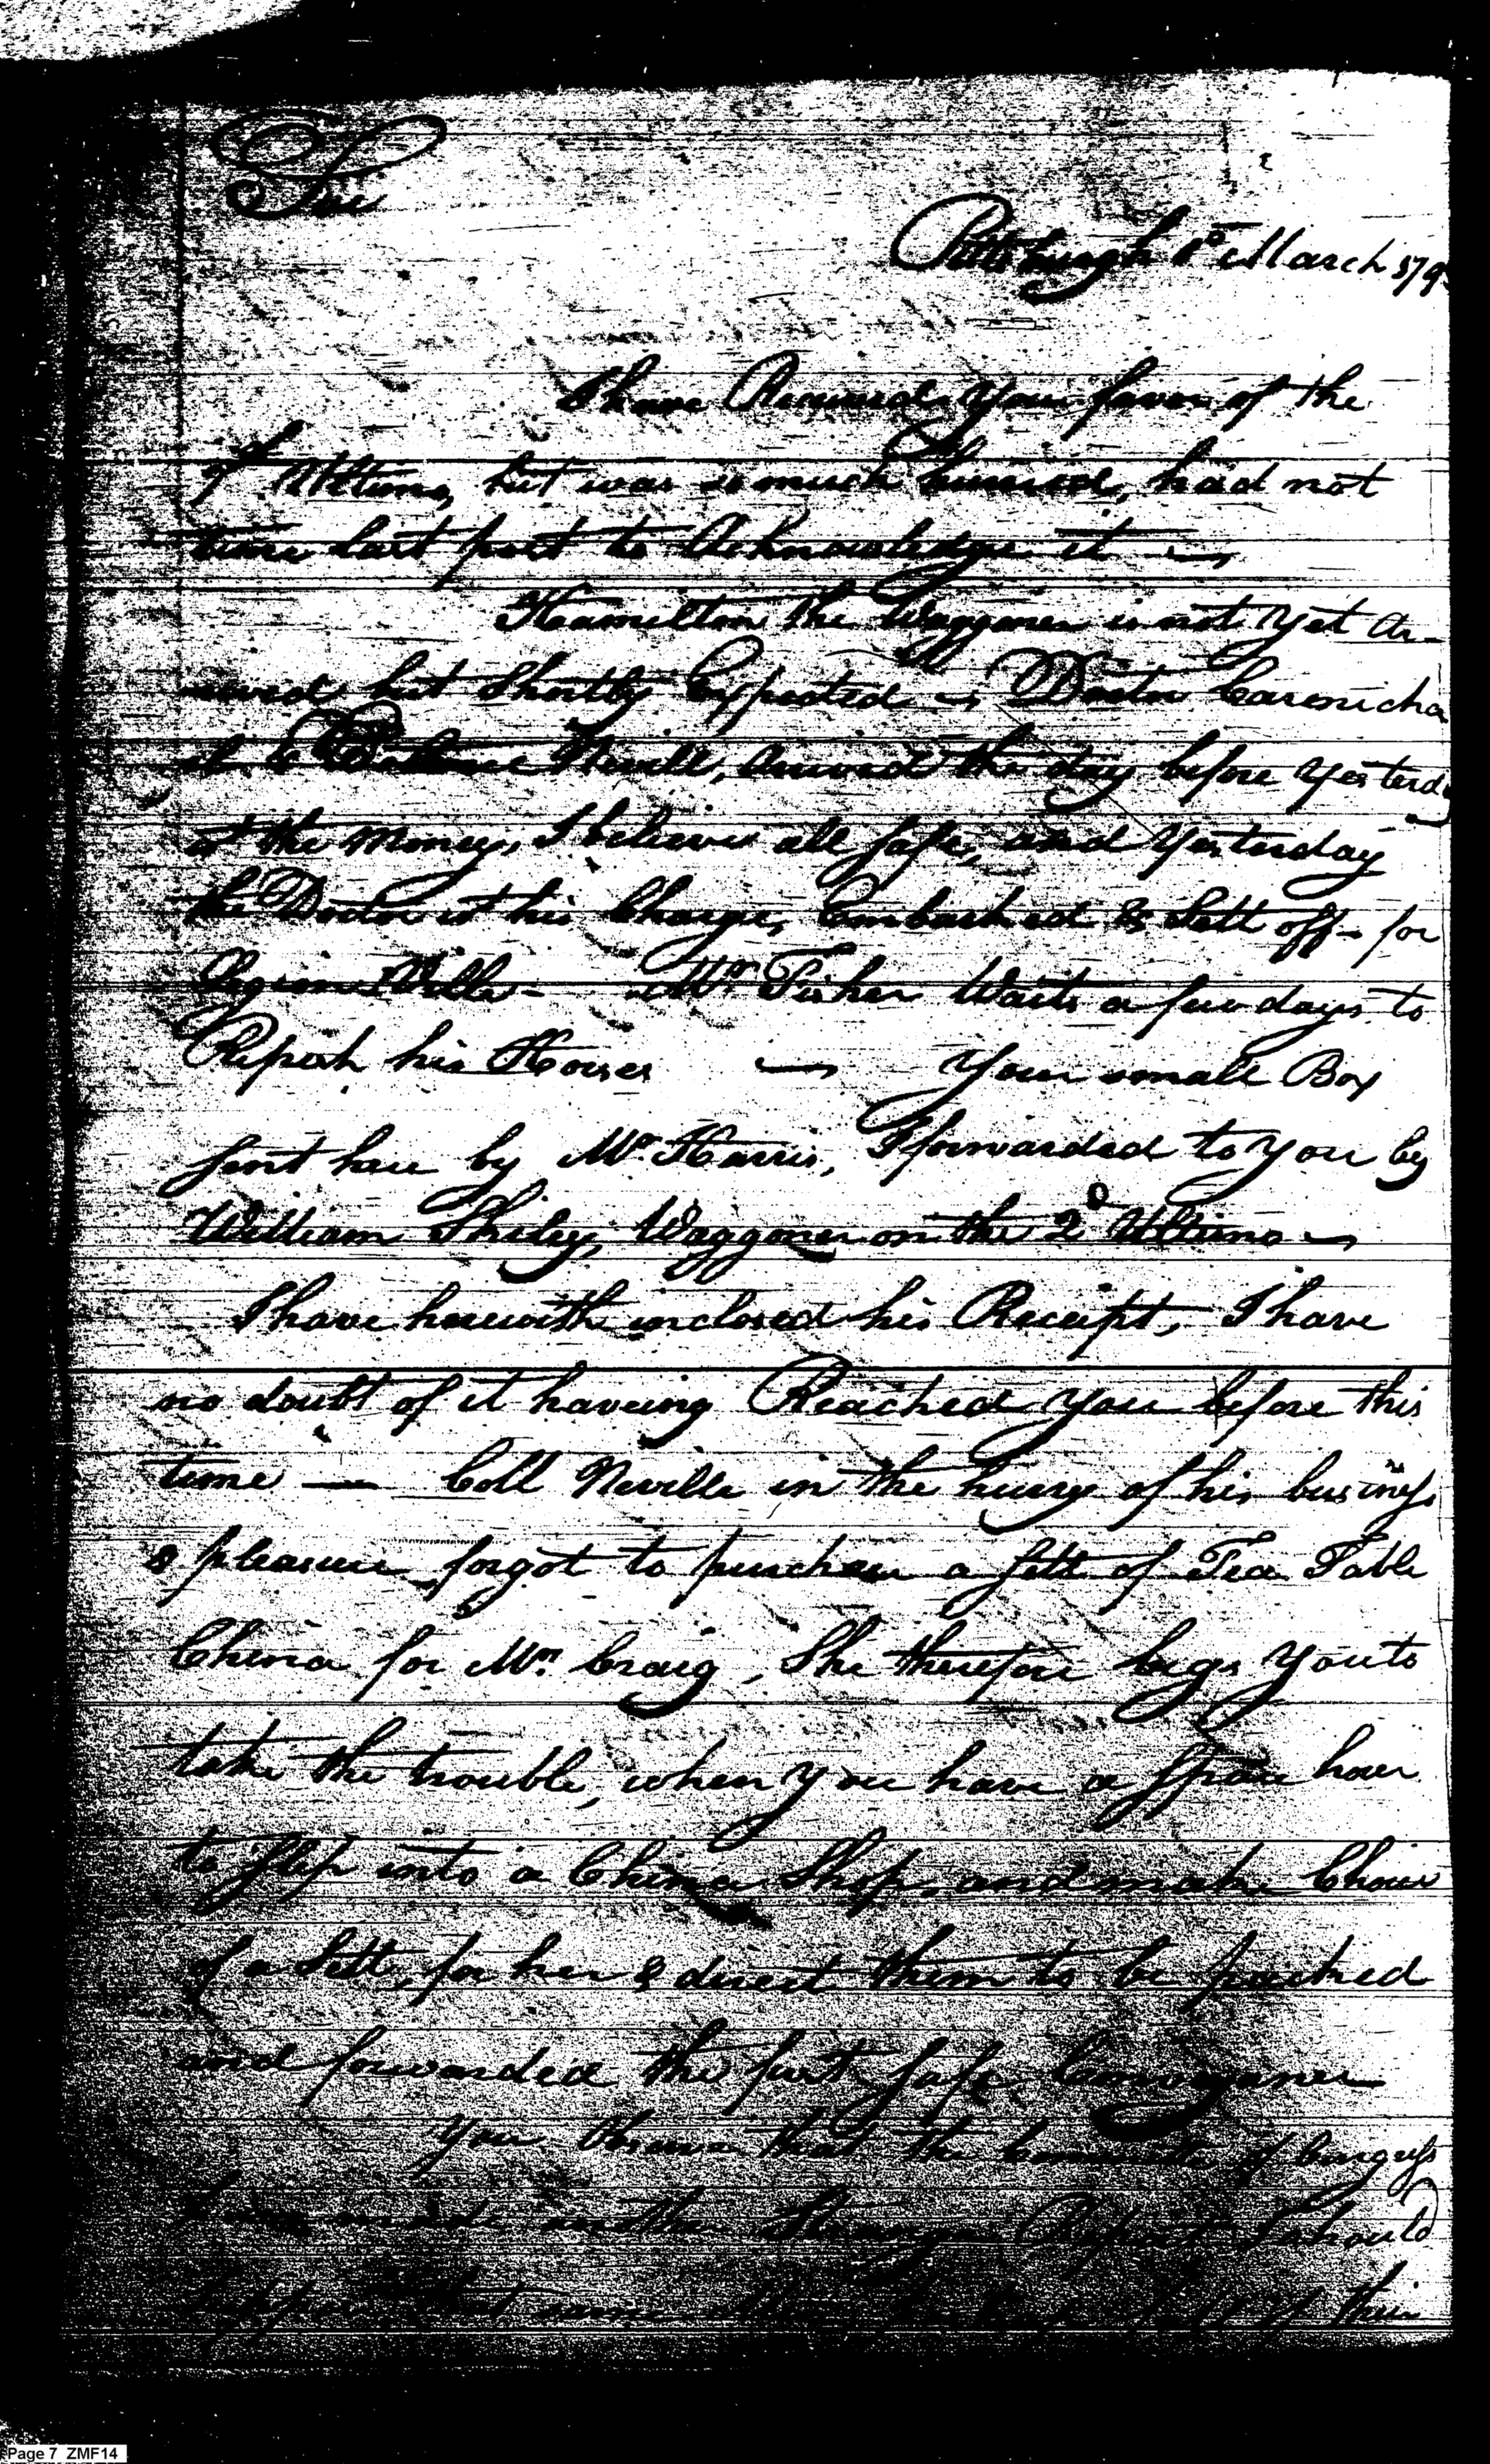 Sir
Pittsburgh 1st March 179
I have Received your favor of the
Ultimo, but was so much hurried, had not
time last post to Acknowledge it —
Hamilton the Waggoner is not yet Ar-
rived but Shortly Expected — Doctor Carmicha
el & Neville, Arrived the day before yesterday
the Money, I believe all safe, and yesterday
the Doctor his Charge, Embarked & Sett off for
Legion Ville — Mr Fisher Waits a few days to
his Horses — Your small Box
sent here by Mr. Harris, I forwarded to you by
William Waggoner on the 2d Ultimo —
I have herewith inclosed his Receipt, I have
no doubt of it haveing Reached you before this
time — Coll Neville in the hurry of his business
& pleasure forgot to purchase a sett of Tea Table
China for Mrs. Craig, She therefore begs you to
take the trouble, when you have a spare hour
to step into a China Shop, and make Choice
of a Sett, for her & direct them to be packed
and forwarded the first safe Conveyance
You know that the of Congress
have made another Report I should
some of their
Page 7 ZMF14